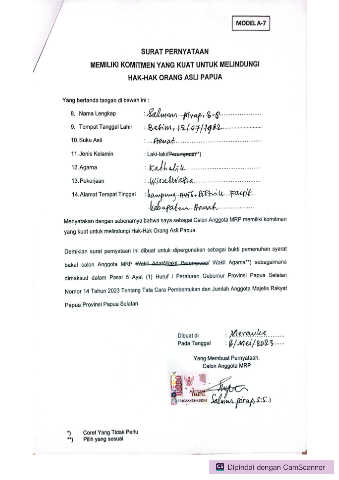 MODEL A-7
SURAT PERNYATAAN
MEMILIKI KOMITMEN YANG KUAT UNTUK MELINDUNGI
HAK-HAK ORANG ASLI PAPUA
Yang bertanda tangan di bawah ini :
8. Nama Lengkap : Salmon pirap, S.S
9. Tempat Tanggal Lahir : Batim, 15/07/1982
10. Suku Asli : Asmat
11. Jenis Kelamin : Laki-laki/Perempuan*)
12. Agama : Katholik
13. Pekerjaan : Wiraswasta
14. Alamat Tempat Tinggal : kampung Distrik
kabupaten Asmat
Menyatakan dengan sebenarnya bahwa saya sebagai Calon Anggota MRP memiliki komitmen
yang kuat untuk melindungi Hak-Hak Orang Asli Papua.
Demikian surat pernyataan ini dibuat untuk dipergunakan sebagai bukti pemenuhan syarat
bakal calon Anggota MRP Wakil Adat/Wakil Perempuan/ Wakil Agama**) sebagaimana
dimaksud dalam Pasal 5 Ayat (1) Huruf f Peraturan Gubernur Provinsi Papua Selatan
Nomor 14 Tahun 2023 Tentang Tata Cara Pembentukan dan Jumlah Anggota Majelis Rakyat
Papua Provinsi Papua Selatan.
Dibuat di : Merauke
Pada Tanggal : 8/Mei/2023
Yang Membuat Pernyataan,
Calon Anggota MRP
Salmon pirap, S.S.)
*) Coret Yang Tidak Perlu
**) Pilih yang sesuai
Dipindai dengan CamScanner